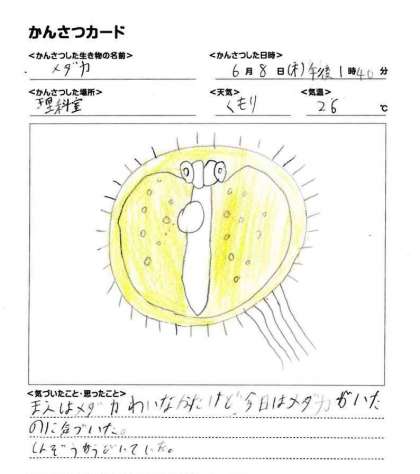 かんさつカード
<かんさつした生き物の名前> <かんさつした日時>
メダカ 6月8日(木)午後1時40分
<かんさつした場所> <天気> <気温>
理科室 くもり 26℃
<気づいたこと・思ったこと>
まえはメダカわいなかたけど今日はメダカがいた
のに気づいた。
しんぞうがうごいていた。